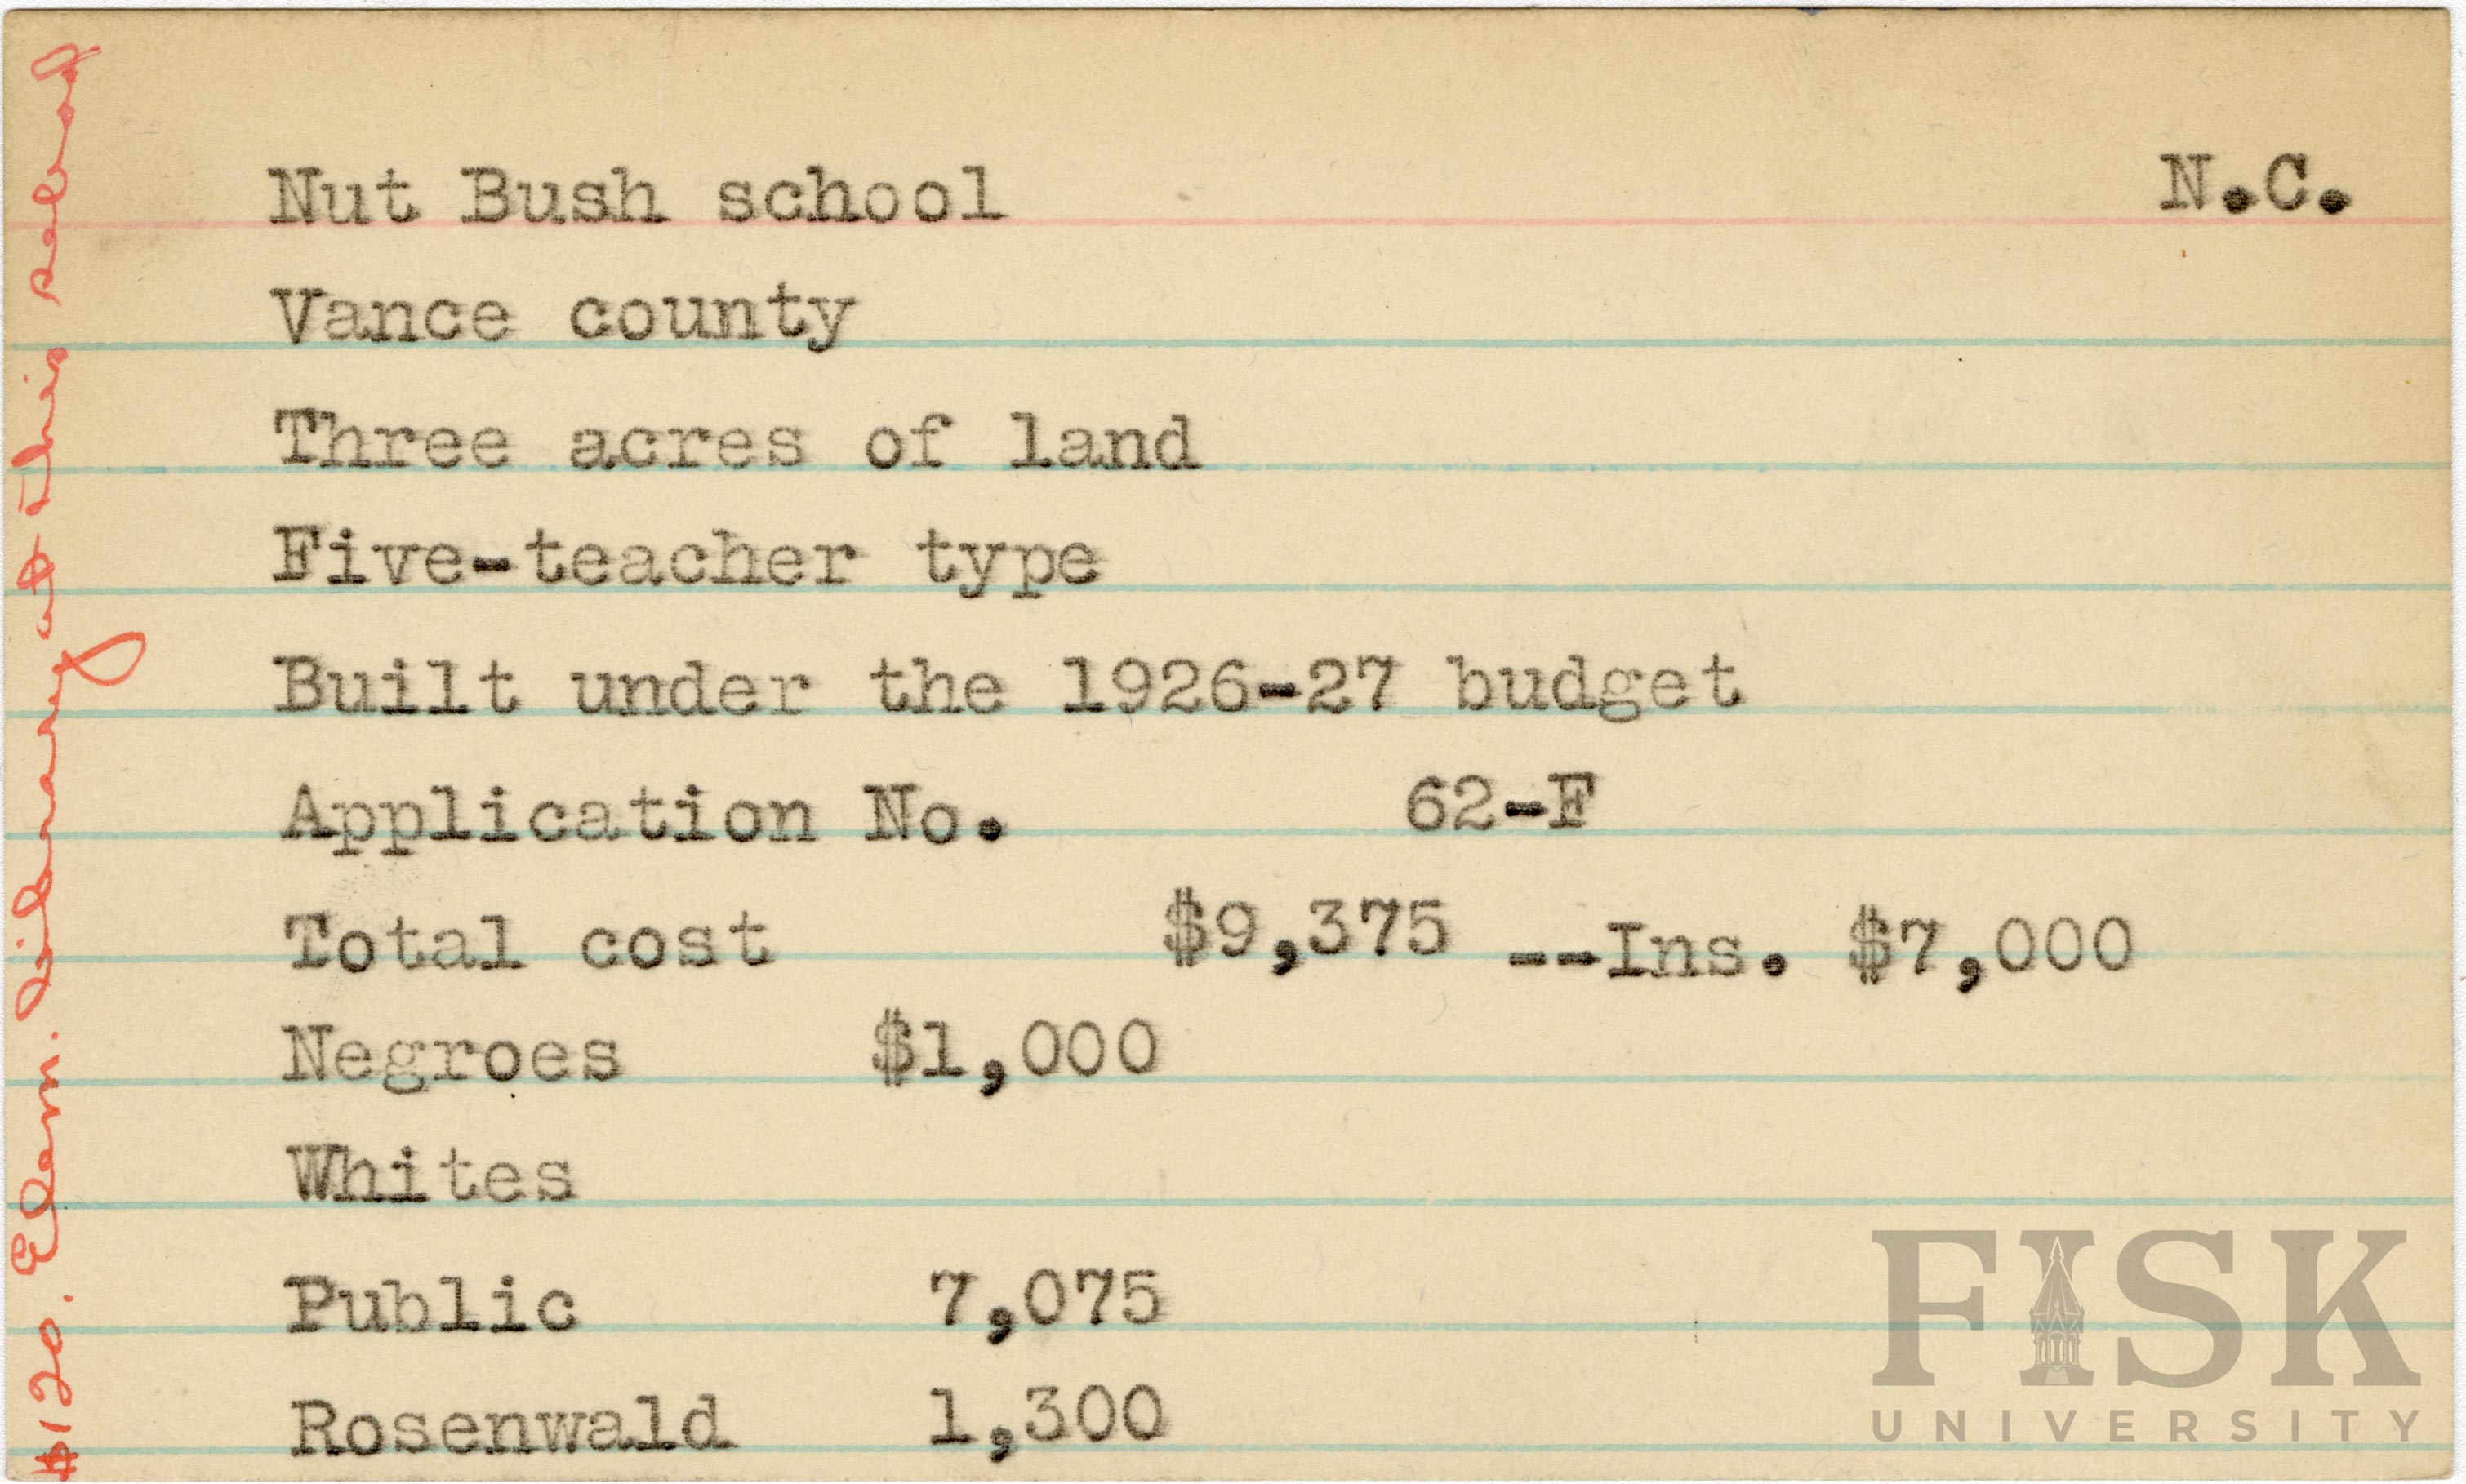 Nut Bush school N.C.
Vance county
Three acres of land
Five-teacher type
Built under the 1926-27 budget
Application No. 62-F
Total cost $9,375 --Ins. $7,000
Negroes $1,000
Whites
Public 7,075
Rosenwald 1,300
$120. Elem. library at this school
FISK
UNIVERSITY